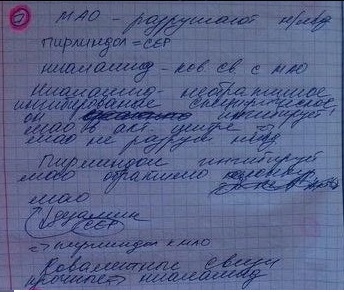 МАО - разрушают н/мед
Пирлиндол = СЕР
Ниаламид - ков. св. с МАО
Ниаламид - необратимое
ингибирование специфическое
он ингибирует
МАО в акт. центре →
МАО не разруш н/мед
Пирлиндол ингибирует
МАО обратимо
МАО
СЕР
→ Пирлиндол к МАО
Ковалентные связи
прочные → ниаламид